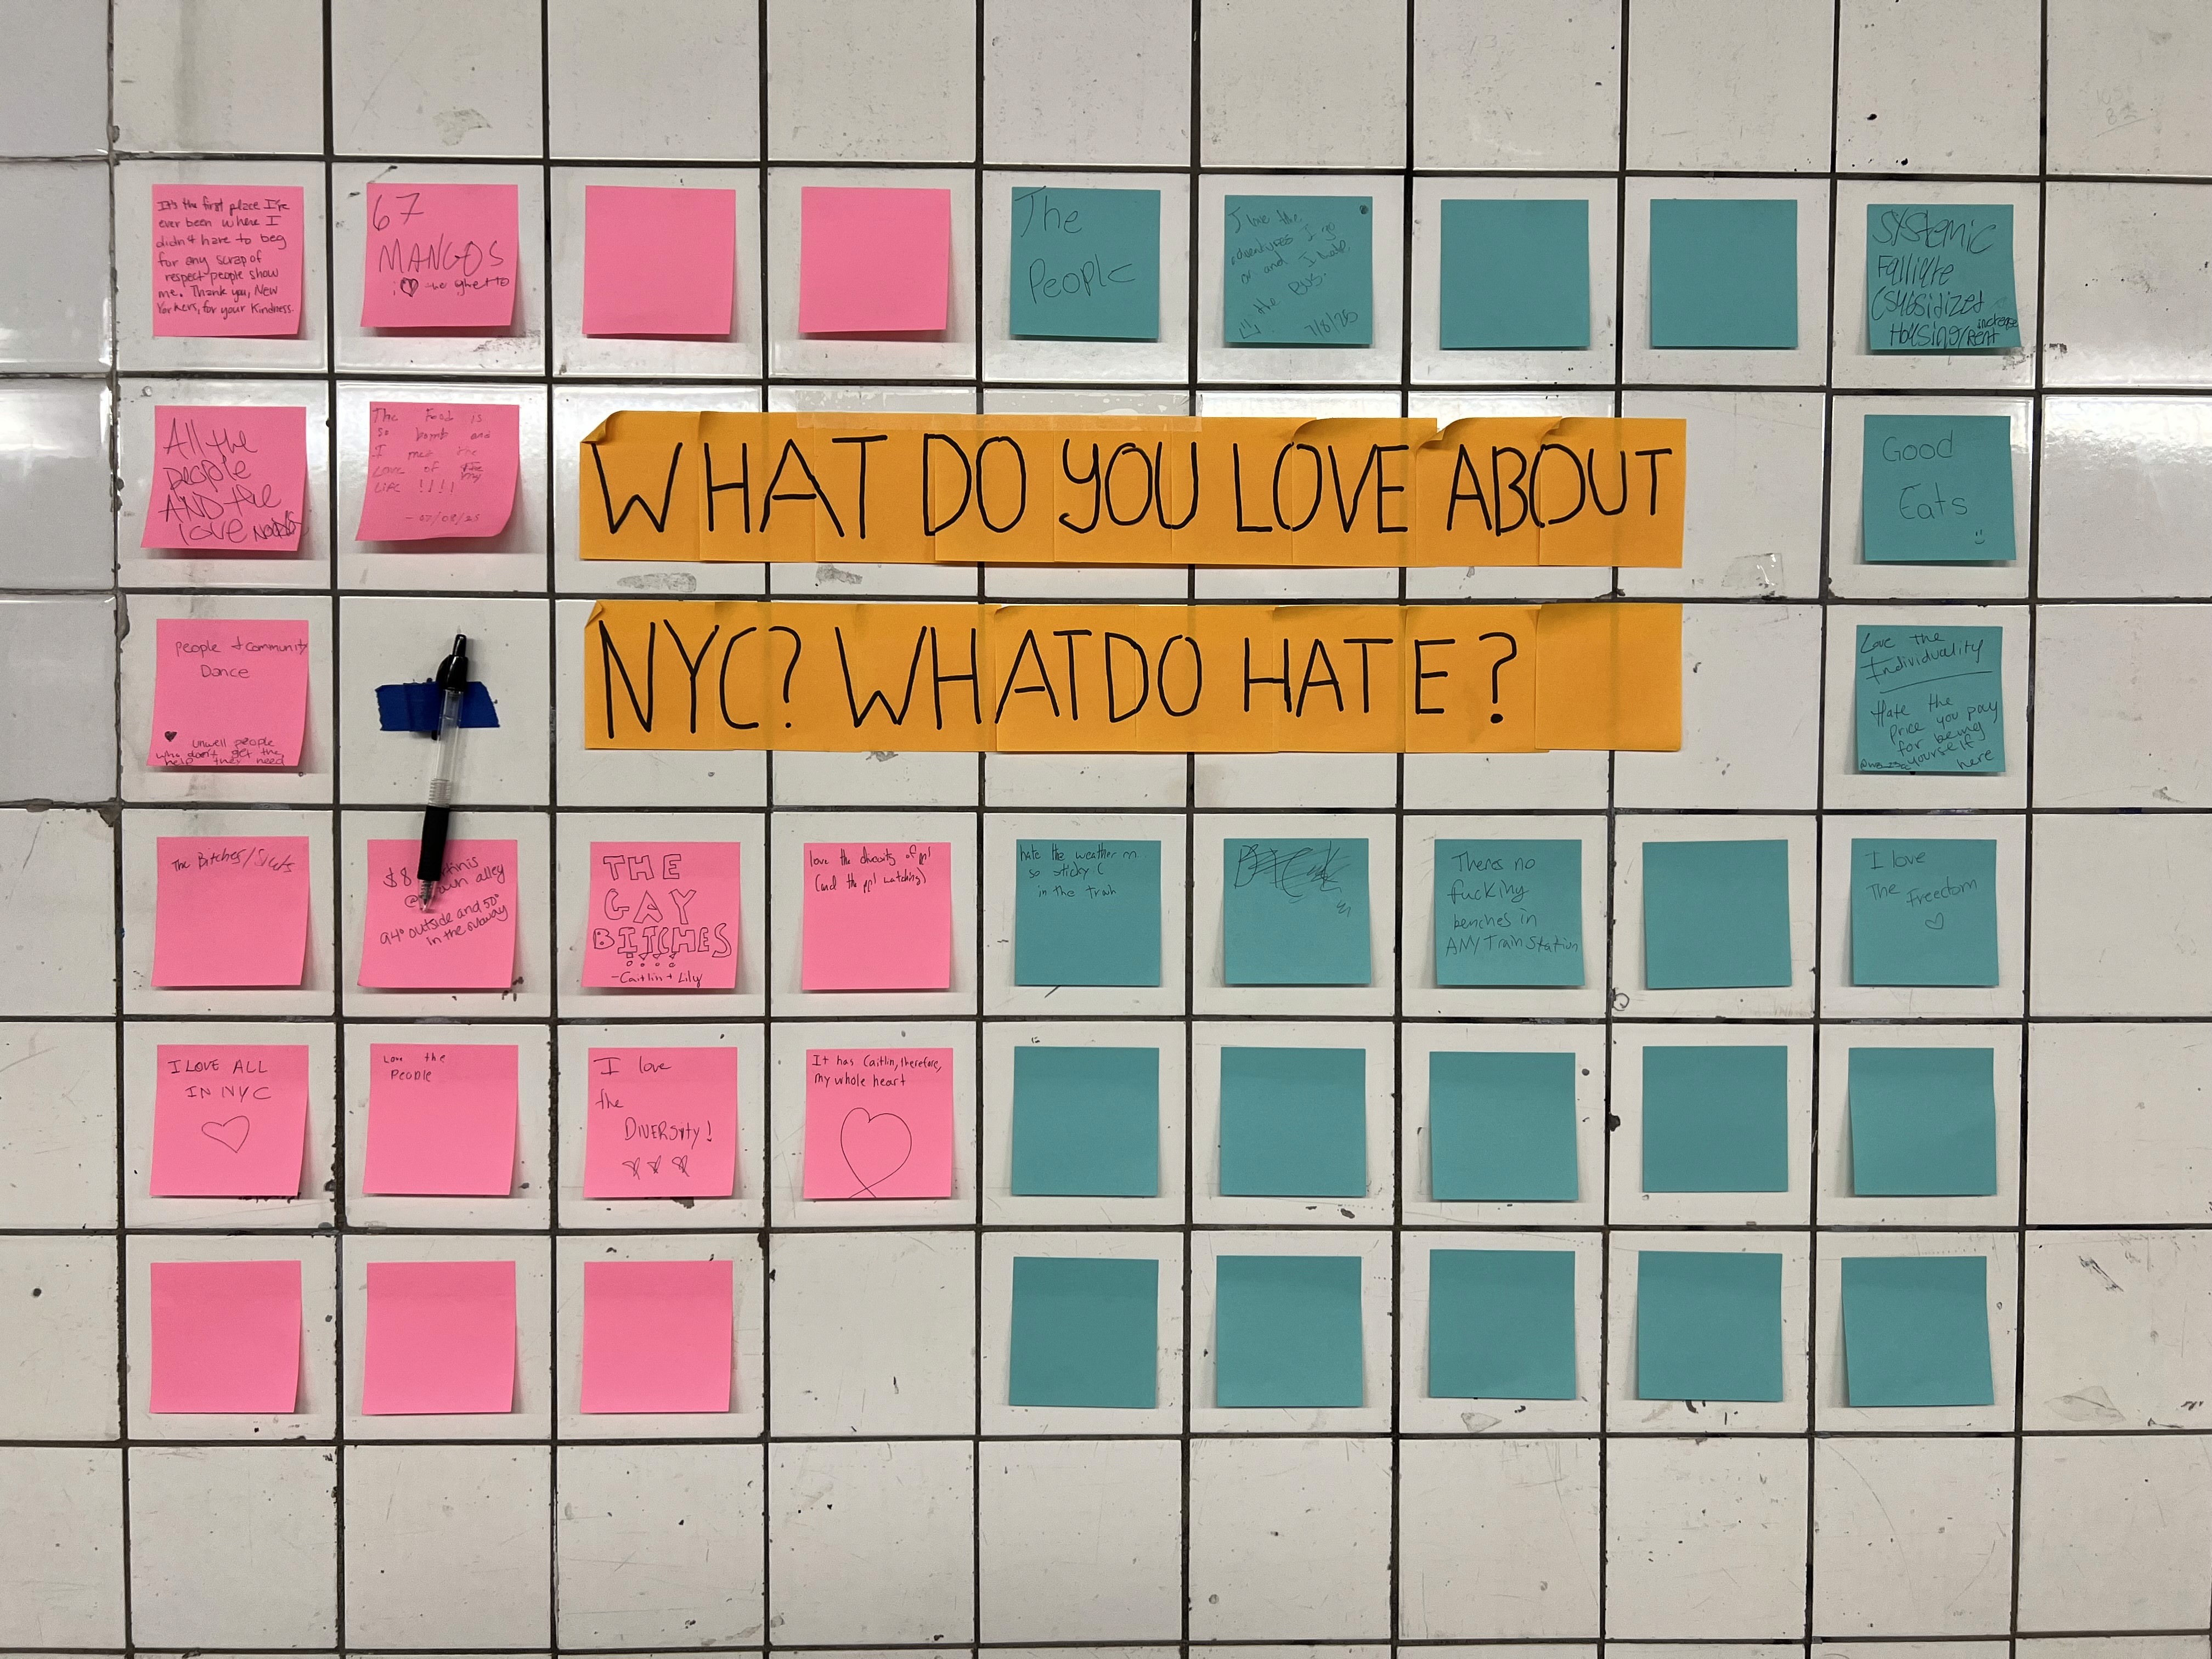 It's the first place I've
ever been where I
didn't have to beg
for any scrap of
respect people show
me. Thank you, New
Yorkers, for your Kindness.
67
MANGOS
i ♥ the ghetto
The
People
I love the
adventures I go
on and I hate
the Bus.
7/8/25
SYSTEMIC
Failure
(subsidized
Housing/Rent
increase
All the
people
AND the
love
The Food is
so bomb and
I met the
Love of
my
Life !!!!
- 07/08/25
WHAT DO YOU LOVE ABOUT
Good
Eats
People + Community
Dance
unwell people
who don't get the
help they need
NYC? WHAT DO HATE?
Love the
Individuality
Hate the
price you pay
for being
yourself
here
The Bitches/Sluts
$8
alley
94° outside and 50°
in the subway
THE
GAY
BITCHES
-Caitlin + Lily
love the diversity of ppl
(and the ppl watching)
hate the weather
so sticky
in the train
Theres no
fucking
benches in
ANY Train Station
I love
The Freedom
I LOVE ALL
IN NYC
Love the
People
I love
the
DIVERSITY!
It has Caitlin, therefore,
my whole heart